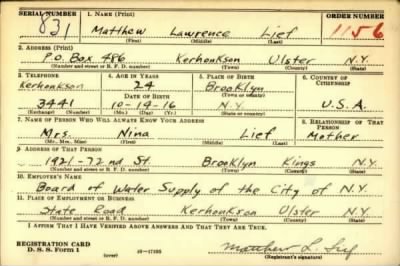 SERIAL NUMBER 1. NAME (Print) ORDER NUMBER
831 Matthew Lawrence Lief 1156
(First) (Middle) (Last)
2. ADDRESS (Print)
P.O. Box 486 Kerhonkson Ulster N.Y.
(Number and street or R. F. D. number) (Town) (County) (State)
3. TELEPHONE 4. AGE IN YEARS 5. PLACE OF BIRTH 6. COUNTRY OF CITIZENSHIP
Kerhonkson 24 Brooklyn
DATE OF BIRTH (Town or county)
3441 10-19-16 N.Y. U.S.A.
(Exchange) (Number) (Mo.) (Day) (Yr.) (State or country)
7. NAME OF PERSON WHO WILL ALWAYS KNOW YOUR ADDRESS 8. RELATIONSHIP OF THAT PERSON
Mrs. Nina Lief Mother
(Mr., Mrs., Miss) (First) (Middle) (Last)
9. ADDRESS OF THAT PERSON
1921-72nd St. Brooklyn Kings N.Y.
(Number and street or R. F. D. number) (Town) (County) (State)
10. EMPLOYER'S NAME
Board of Water Supply of the City of N.Y.
11. PLACE OF EMPLOYMENT OR BUSINESS
State Road Kerhonkson Ulster N.Y.
(Number and street or R. F. D. number) (Town) (County) (State)
I AFFIRM THAT I HAVE VERIFIED ABOVE ANSWERS AND THAT THEY ARE TRUE.
REGISTRATION CARD
D. S. S. FORM 1 (over) 16-17105 Matthew L. Lief
(Registrant's signature)